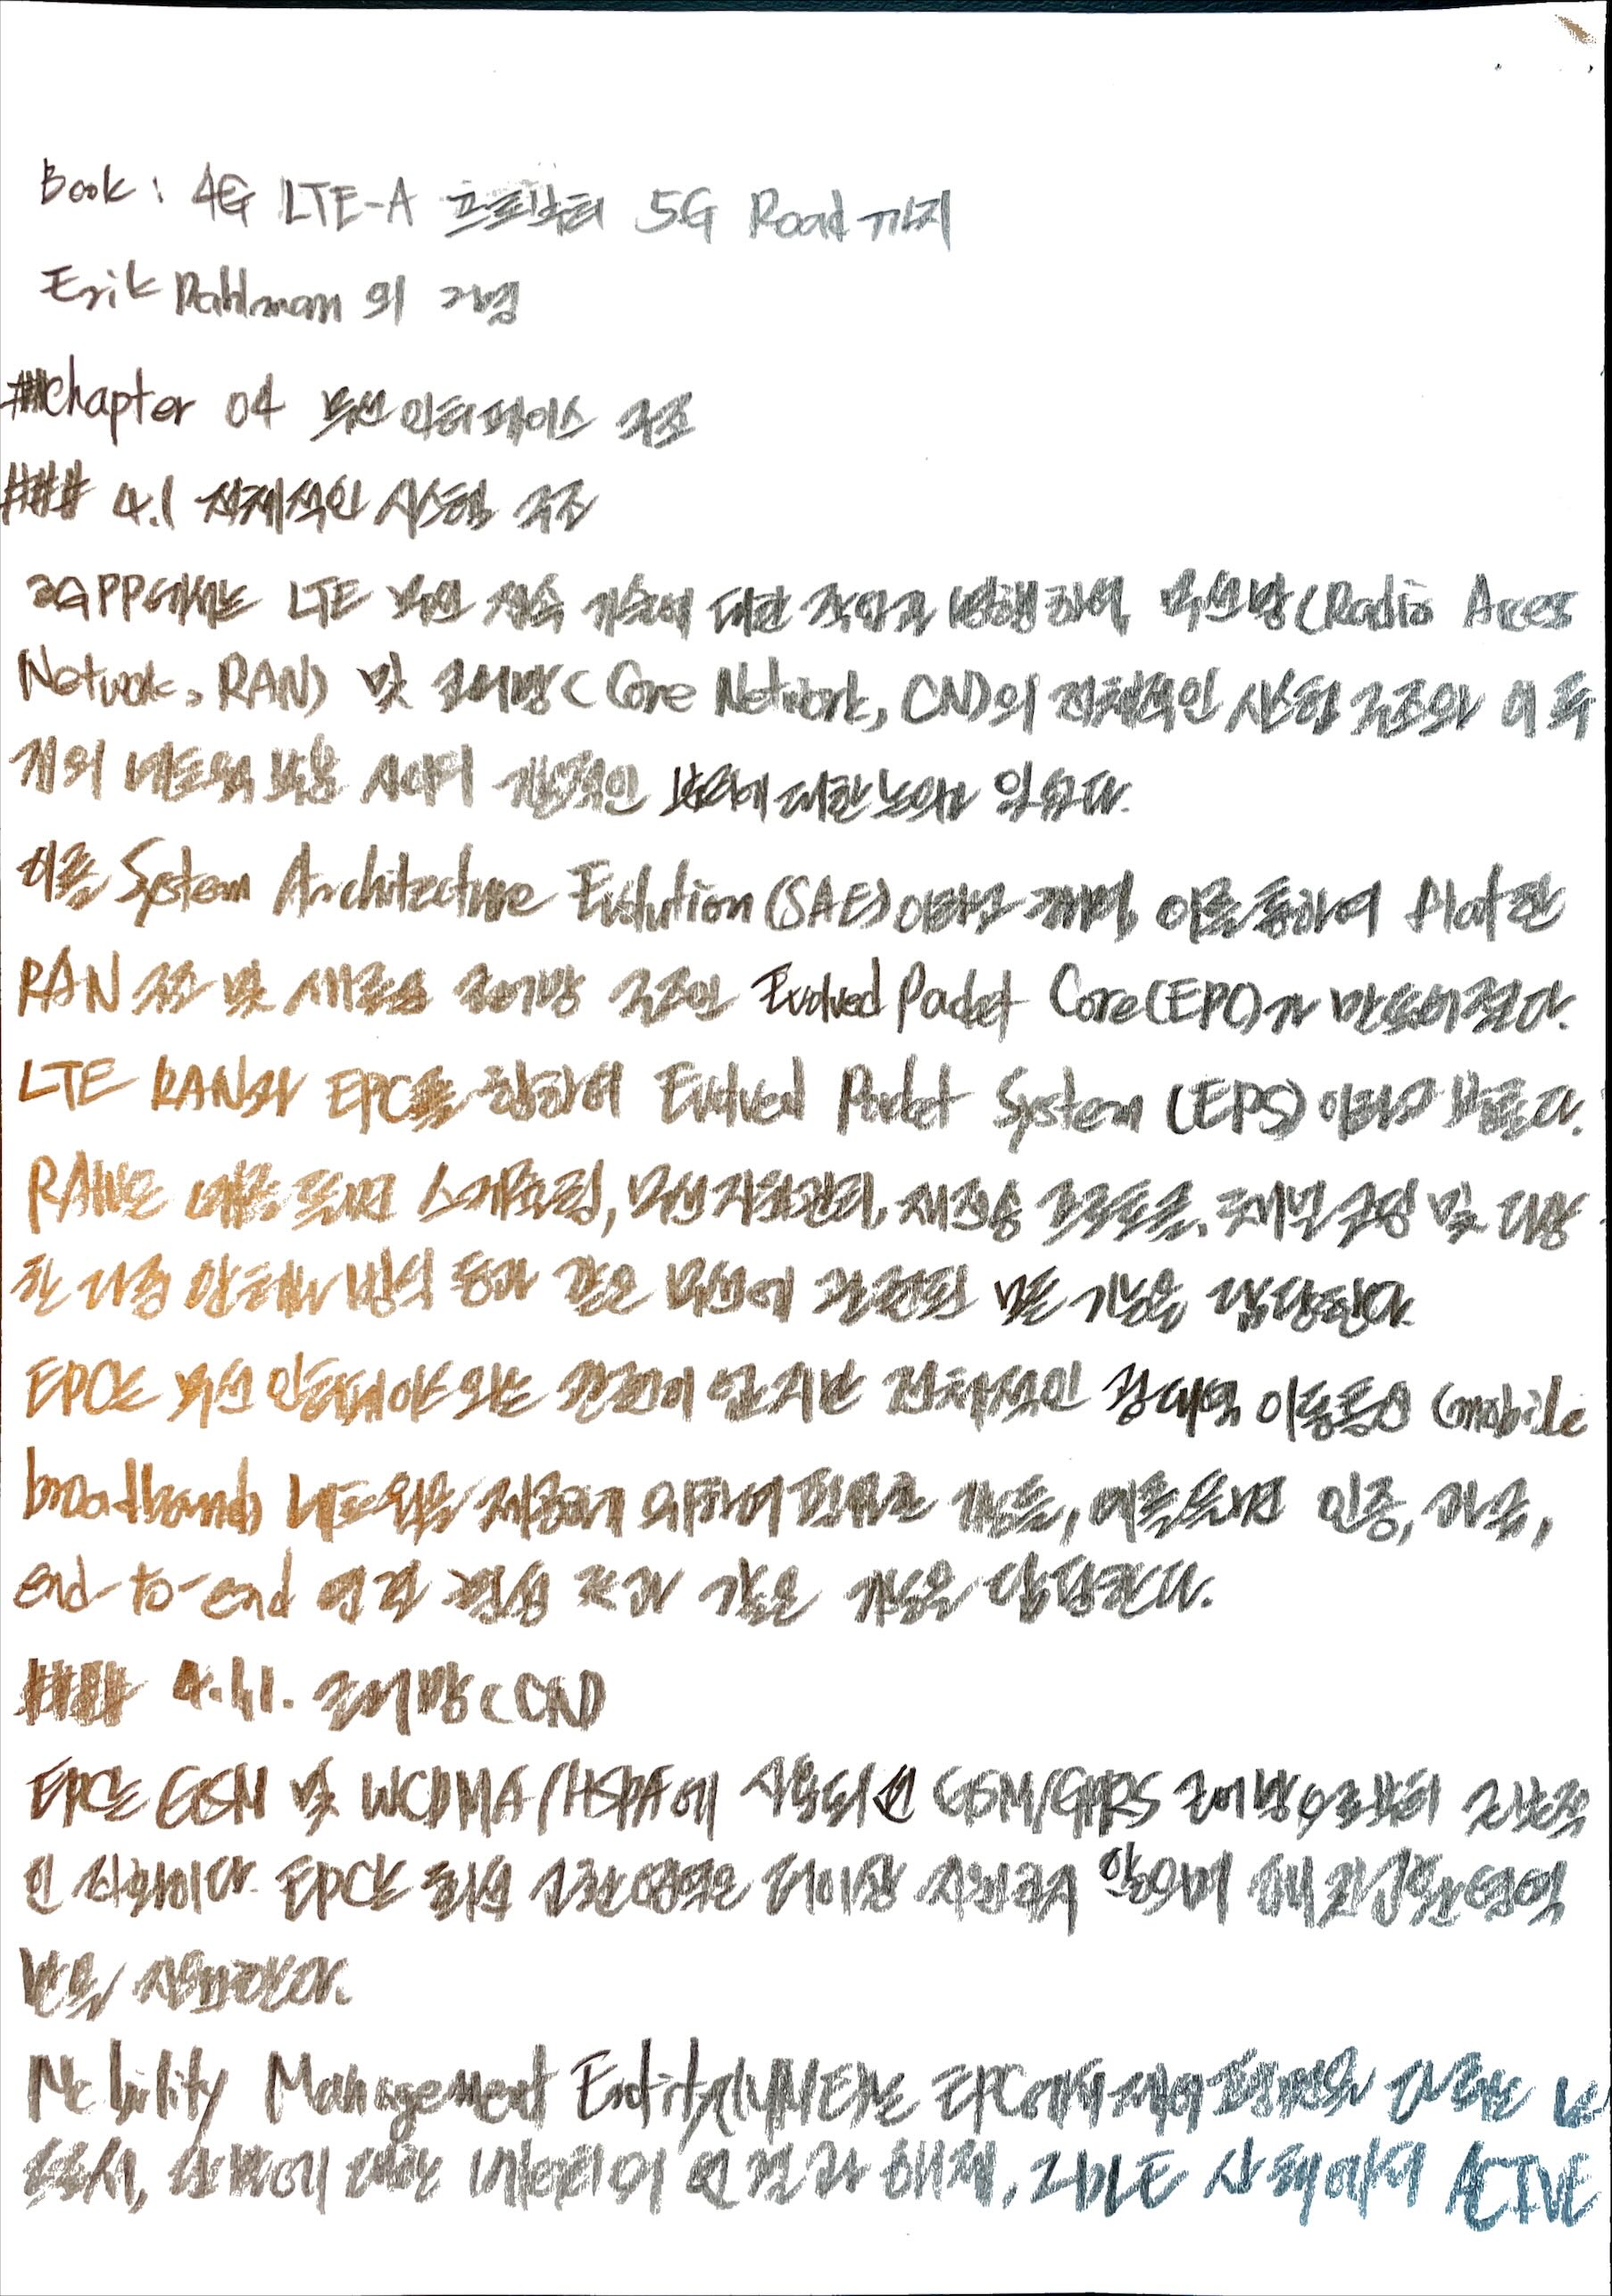 Book : 4G LTE-A 프로부터 5G Road까지
Erik Dahlman 의
#chapter 04 무선 인터페이스 구조
### 4.1 전체적인 시스템 구조
3GPP에서는 LTE 무선 접속 기술에 대한 작업과 병행하여, 무선망(Radio Acces
Network, RAN) 및 코어망(Core Network, CN)의 전체적인 시스템 구조와 이 두
개의 네트워크 부분 사이의 기능적인 분리에 대한 논의가 있었다.
이를 System Architecture Evolution(SAE)이라고 하며, 이를 통하여 flat한
RAN 구조 및 새로운 코어망 구조인 Evolved Packet Core(EPC)가 만들어졌다.
LTE RAN과 EPC를 합하여 Evolved Packet System (EPS)이라고 부른다.
RAN은 예를 들면 스케쥴링, 무선자원관리, 재전송 프로토콜, 채널코딩 및 다양
한 다중 안테나 방식 등과 같은 무선에 관련된 모든 기능을 담당한다.
EPC는 무선 인터페이스와는 관련이 없지만 전체적인 광대역 이동통신 (mobile
broadband) 네트워크를 제공하기 위하여 필요한 기능들, 예를 들면 인증, 과금,
end-to-end 연결 설정 등과 같은 기능을 담당한다.
#### 4.1.1. 코어망(CN)
EPC는 GSM 및 WCDMA/HSPA에 사용되던 GSM/GPRS 코어망으로부터 점진적
인 진화이다. EPC는 회선 교환영역은 더이상 지원하지 않으며 패킷교환영역
만을 지원한다.
Mobility Management Entity(MME)는 EPC에서 제어평면을 다루는 노
드로서, 단말에 대한 베어러의 연결과 해제, IDLE 상태에서 ACTIVE